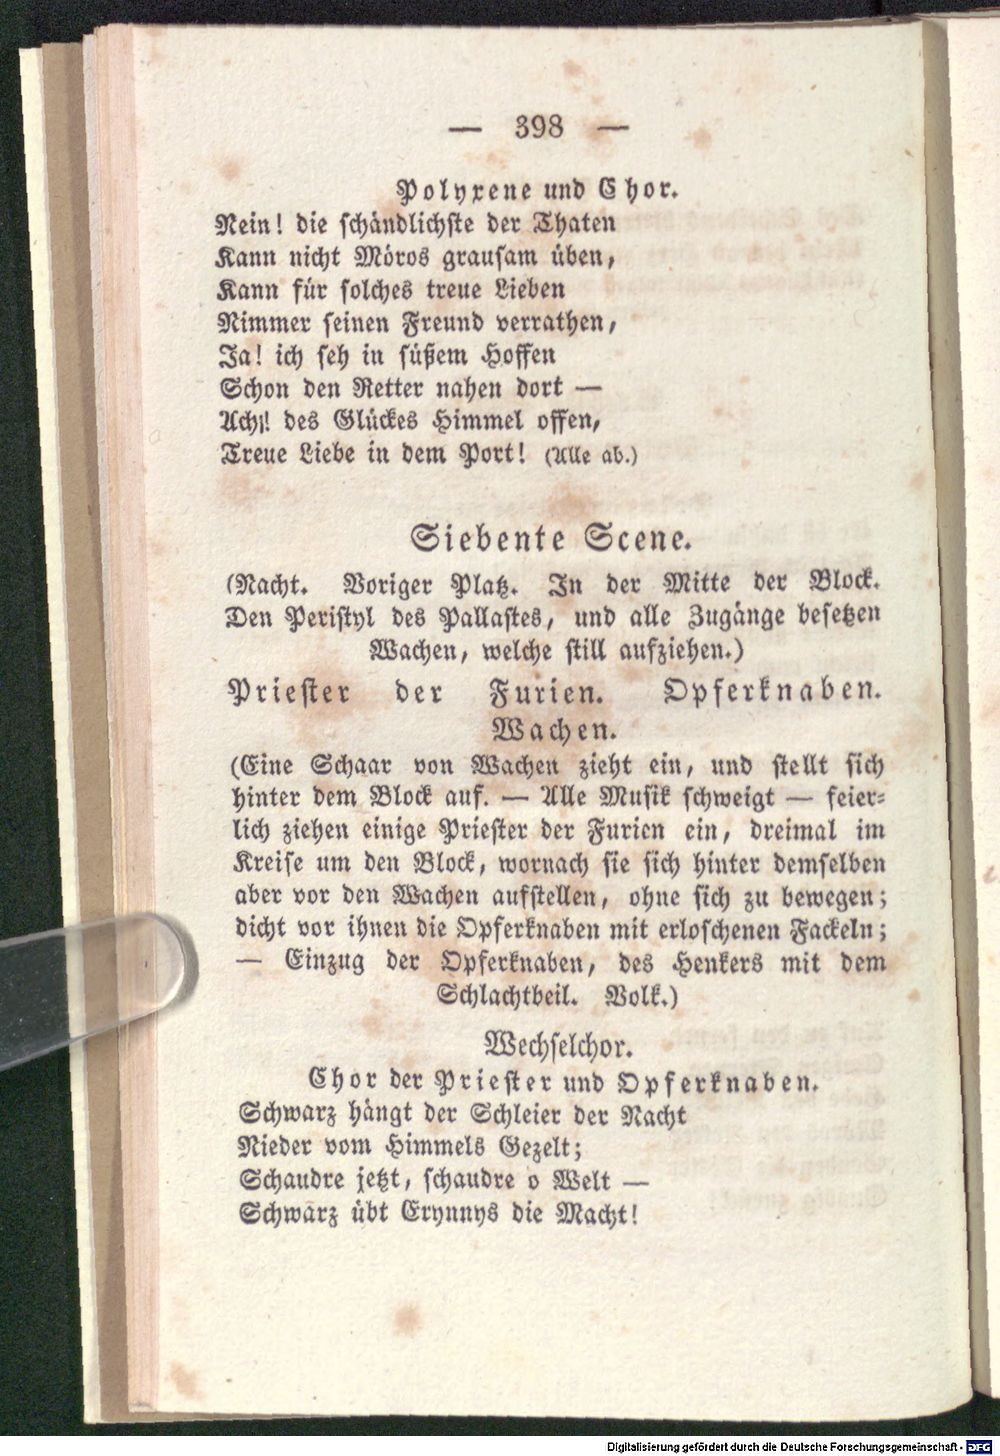 — 398 —
Polyxene und Chor.
Nein! die schändlichste der Thaten
Kann nicht Möros grausam üben,
Kann für solches treue Lieben
Nimmer seinen Freund verrathen,
Ja! ich seh in süßem Hoffen
Schon den Retter nahen dort —
Ach! des Glückes Himmel offen,
Treue Liebe in dem Port! (Alle ab.)
Siebente Scene.
(Nacht. Voriger Platz. In der Mitte der Block.
Den Peristyl des Pallastes, und alle Zugänge besetzen
Wachen, welche still aufziehen.)
Priester der Furien. Opferknaben.
Wachen.
(Eine Schaar von Wachen zieht ein, und stellt sich
hinter dem Block auf. — Alle Musik schweigt — feier-
lich ziehen einige Priester der Furien ein, dreimal im
Kreise um den Block, wornach sie sich hinter demselben
aber vor den Wachen aufstellen, ohne sich zu bewegen;
dicht vor ihnen die Opferknaben mit erloschenen Fackeln;
— Einzug der Opferknaben, des Henkers mit dem
Schlachtbeil. Volk.)
Wechselchor.
Chor der Priester und Opferknaben.
Schwarz hängt der Schleier der Nacht
Nieder vom Himmels Gezelt;
Schaudre jetzt, schaudre o Welt —
Schwarz übt Erynnys die Macht!
Digitalisierung gefördert durch die Deutsche Forschungsgemeinschaft - DFG